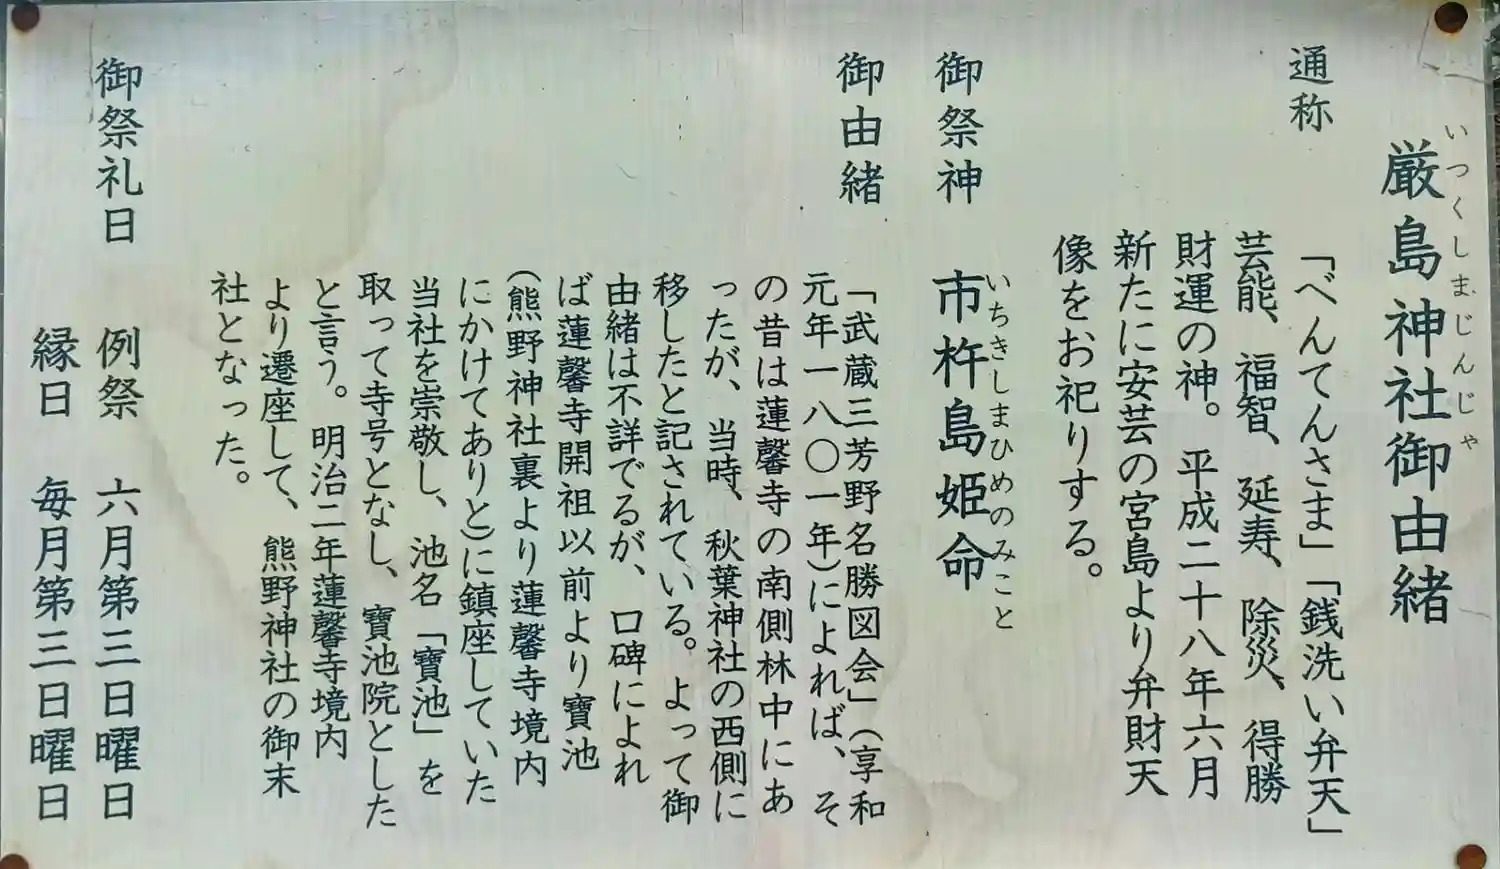 厳島神社御由緒
いつくしまじんじゃ
通称
「べんてんさま」「銭洗い弁天」
芸能、福智、延寿、除災、得勝
財運の神。平成二十八年六月
新たに安芸の宮島より弁財天
像をお祀りする。
御祭神 市杵島姫命
いちきしまひめのみこと
御由緒
「武蔵三芳野名勝図会」(享和
元年一八〇一年)によれば、そ
の昔は蓮馨寺の南側林中にあ
ったが、当時、秋葉神社の西側に
移したと記されている。よって御
由緒は不詳でるが、口碑によれ
ば蓮馨寺開祖以前より寶池
(熊野神社裏より蓮馨寺境内
にかけてありと)に鎮座していた
当社を崇敬し、池名「寶池」を
取って寺号となし、寶池院とした
と言う。明治二年蓮馨寺境内
より遷座して、熊野神社の御末
社となった。
御祭礼日 例祭 六月第三日曜日
縁日 毎月第三日曜日